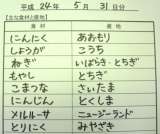 平成 24年 5月 31日分
【主な食材と産地】
食材 産地
にんにく あおもり
しょうが こうち
ねぎ いばらき・とちぎ
もやし とちぎ
こまつな さいたま
にんじん とくしま
メルルーサ ニュージーランド
とりにく みやざき